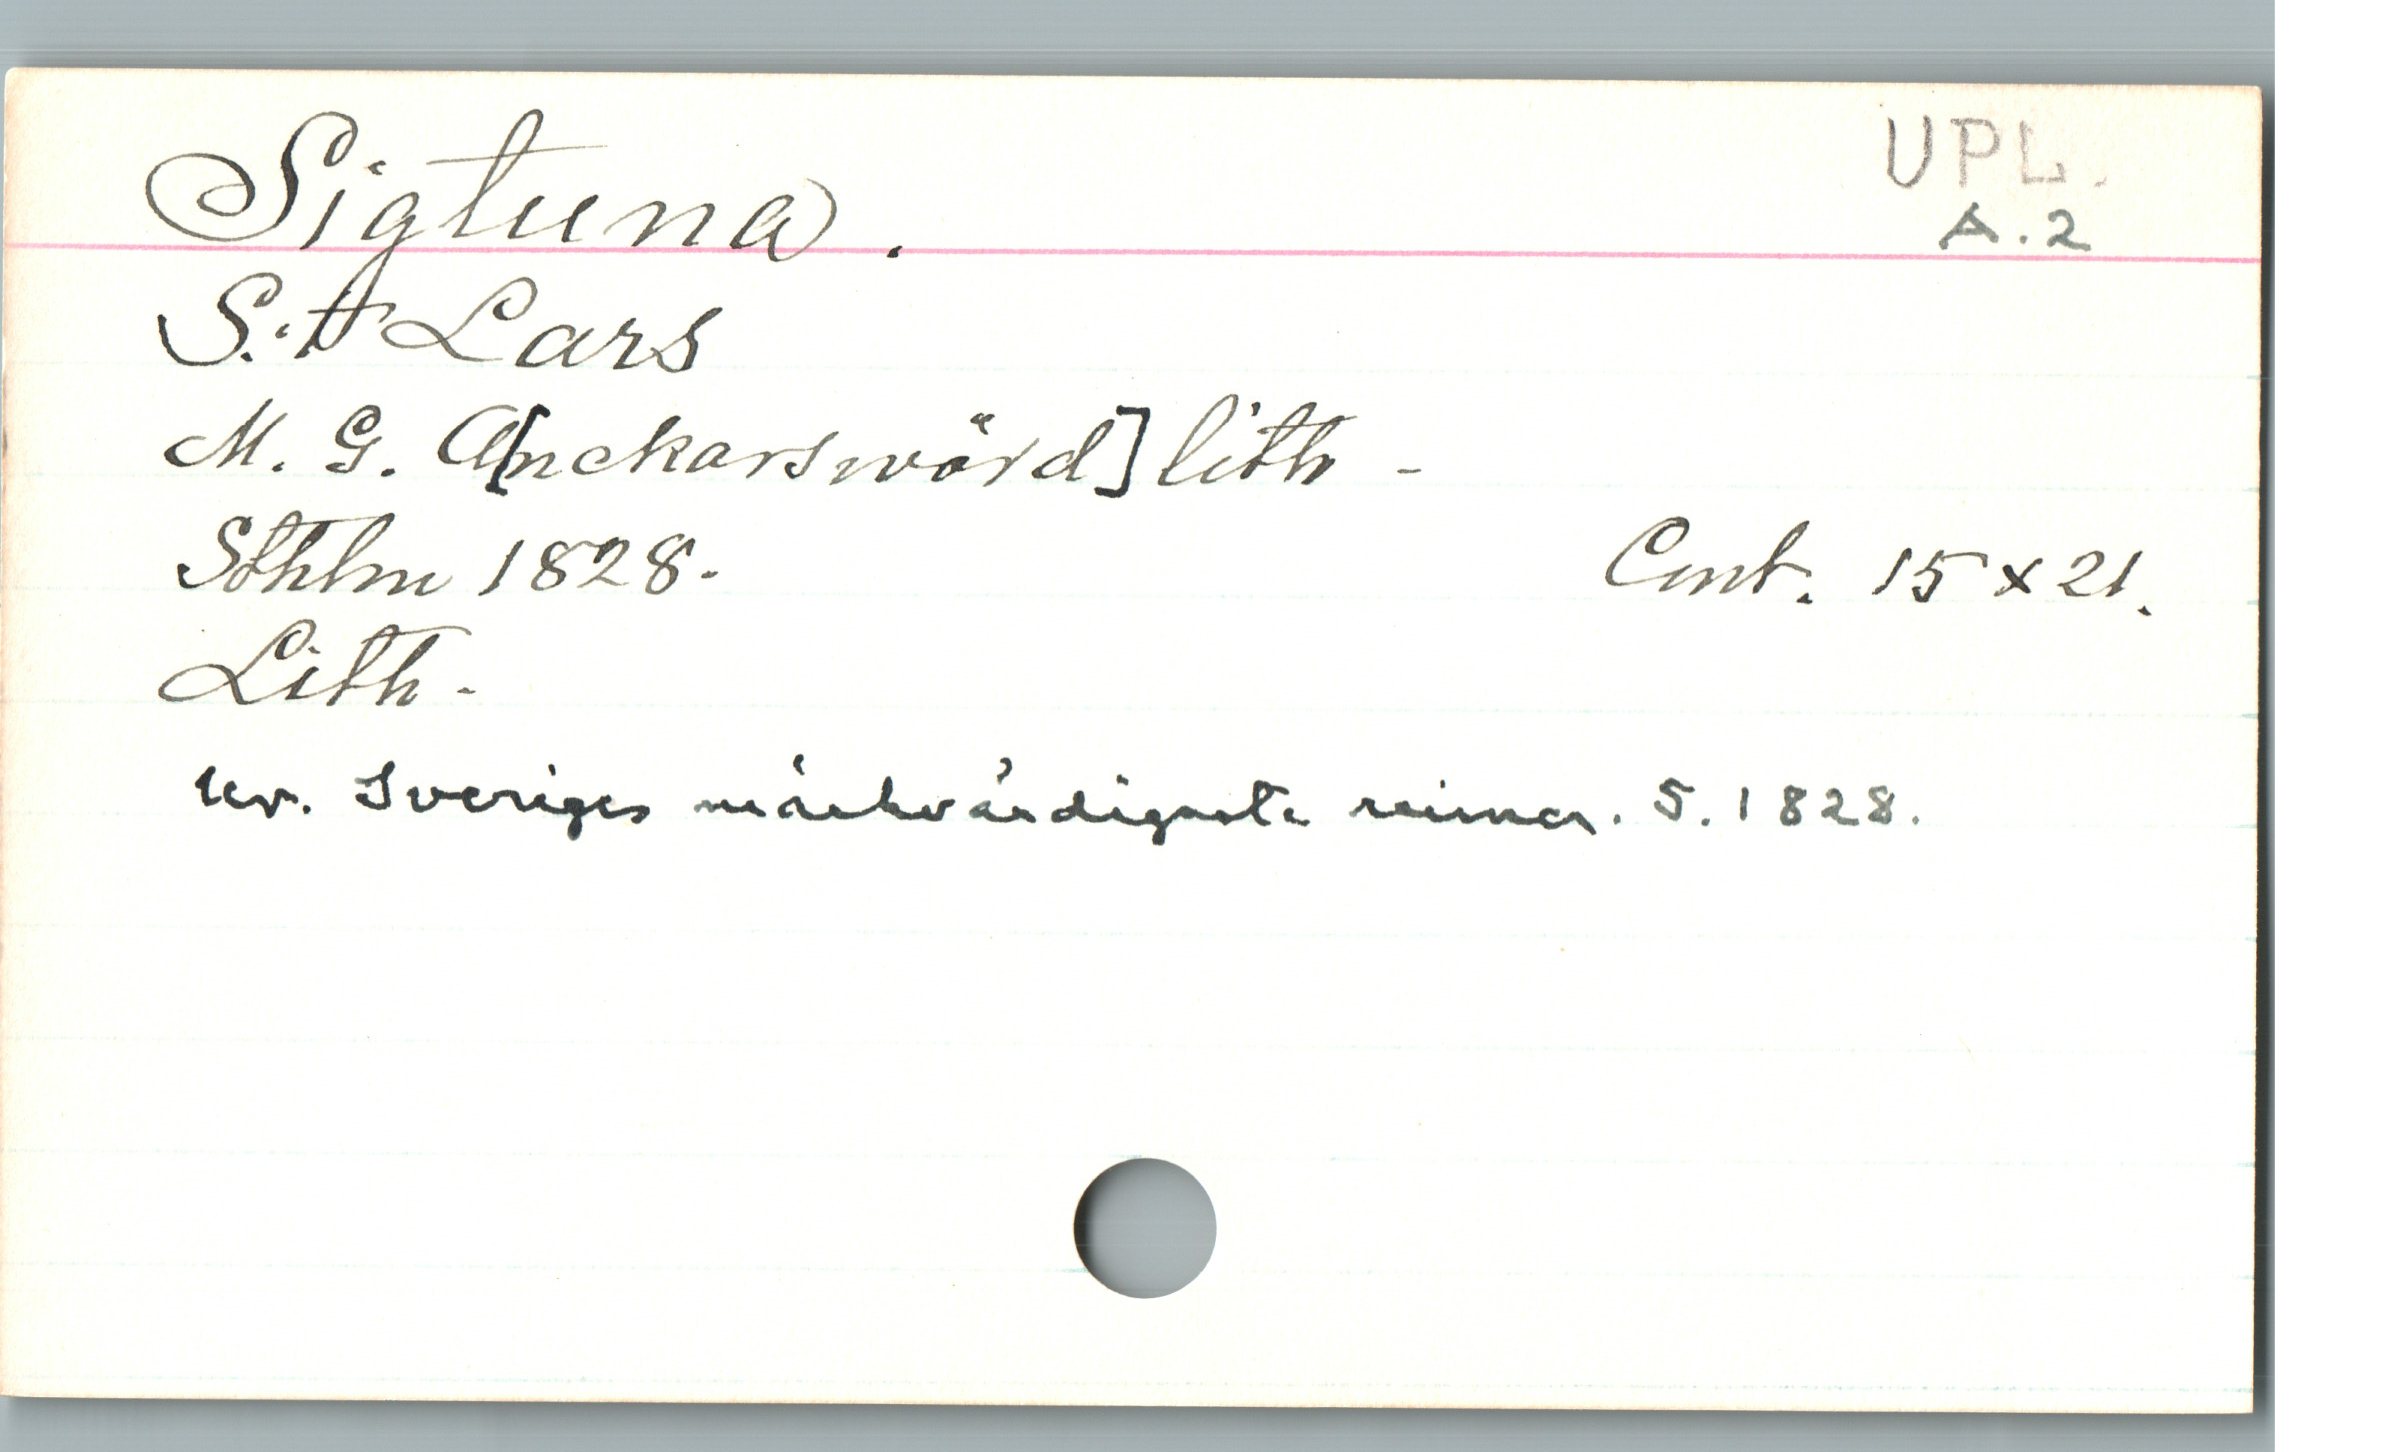 Sigtuna.
UPL.
A.2
S:t Lars
M. G. A[nckarswärd] lith.
Sthlm 1828.
Cont. 15 x 21.
Lith.
Ur. Sveriges märkvärdigaste ruiner. 5. 1828.